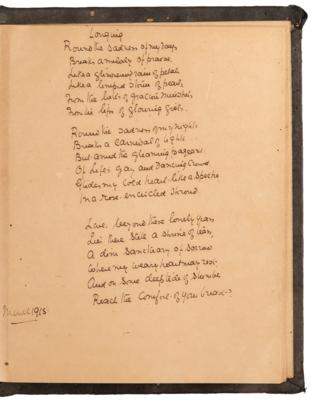 Longing
Round the sadness of my days
Breaks a melody of praise,
Like a glimmering rain of petals
Like a tempest storm of pearls,
From the hands of gracious minstrels,
From the lips of glowing girls.
Round the sadness of my nights
Breaks a carnival of lights
But amid the gleaming pageant
Of life's gay and dancing crowd
Glides my cold heart like a spectre
In a rose-encircled shroud.
Love, beyond these lonely years
Lies there still a shrine of tears,
A dim sanctuary of sorrow
Where my weary heart may rest
And on some deep tide of slumber
Reach the comfort of your breast
March 1915